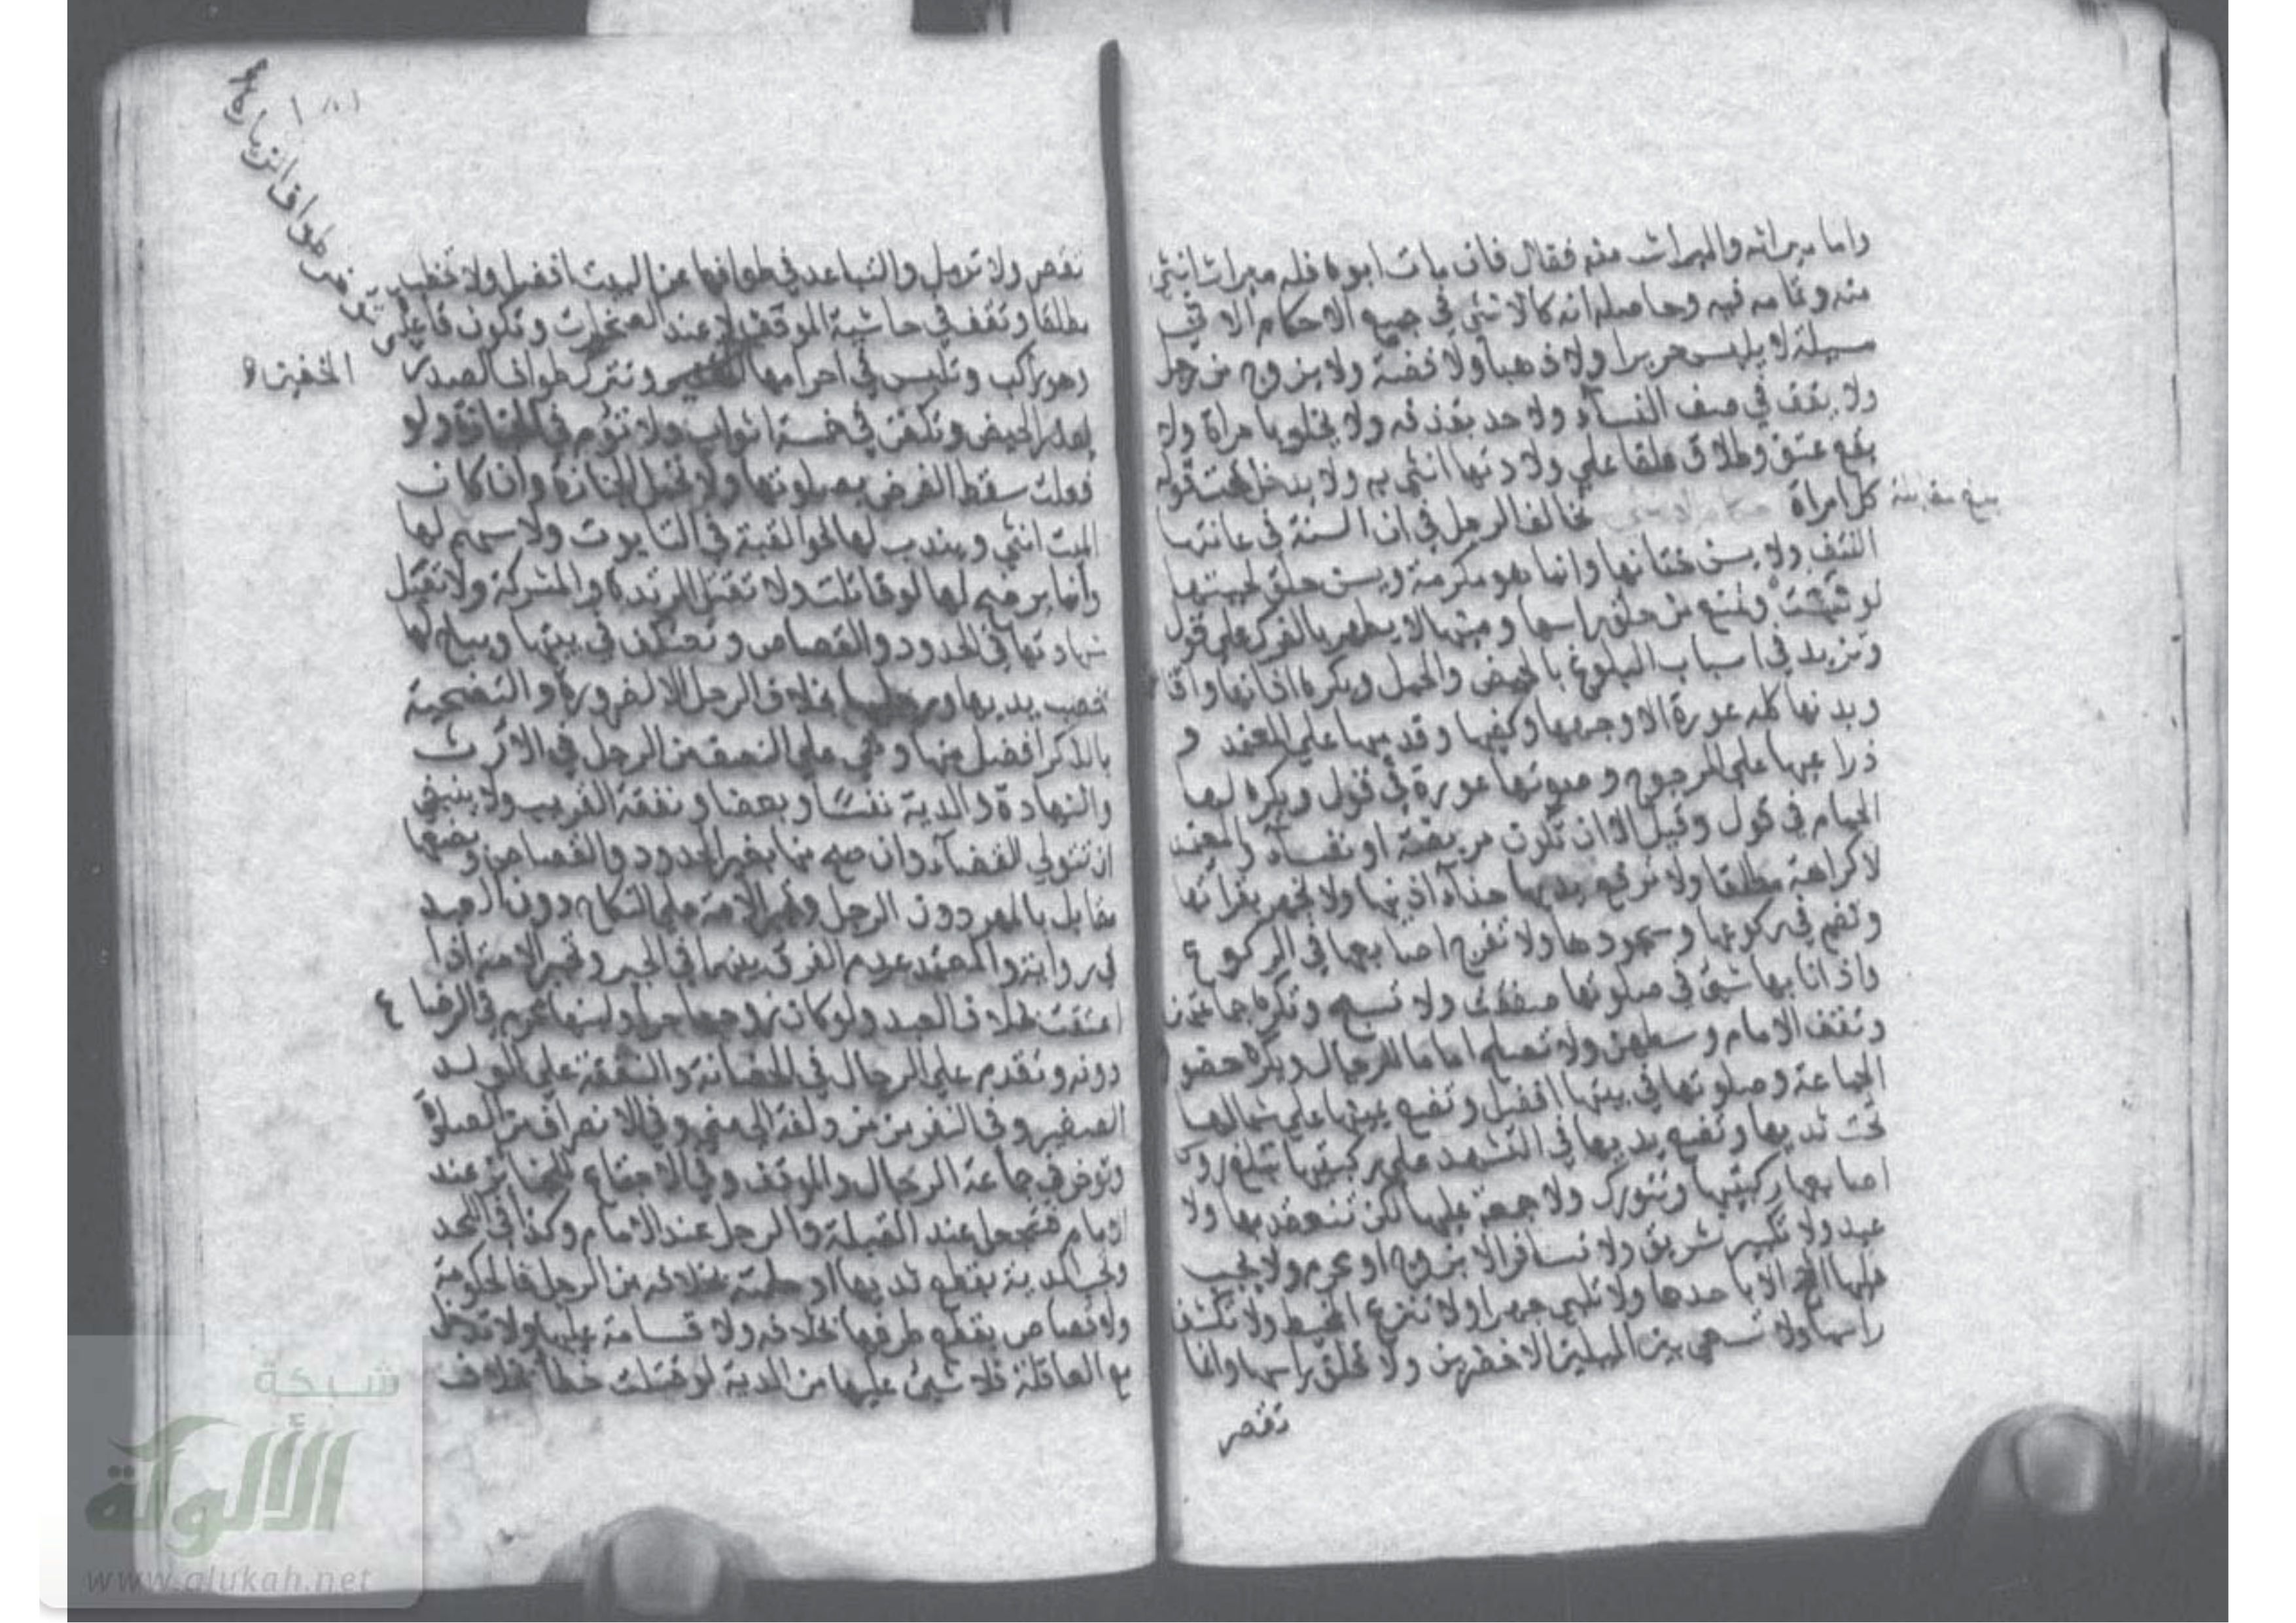 واما ميراثه والميراث منه فقال فان مات ابوه فله ميراث انثى
منه وتمامه فيه وحاصله انه كالانثى في جميع الاحكام الا في
مسيلة لا يلبس حريرا ولا ذهبا ولا فضة ولا يزوج من رجل
ولا يقف في صف النساء ولا حد بقذفه ولا يخلو بامراة ولا
يقع عتق وطلاق علقا على ولادتها انثى به ولا يدخل تحت قوله
كل امراة تخالف الرجل في ان السنة في عانتها
النتف ولا يسن ختانها وانما هو مكرمة ويسن حلق لحيتها
لو نبتت وتمنع من حلق راسها ومنيها لا يطهر بالفرك على قول
وتزيد في اسباب البلوغ بالحيض والحمل ويكره اذانها واقا
وبدنها كله عورة الا وجهها وكفيها وقدميها على المعتمد و
ذراعيها على المرجوح وصوتها عورة في قول ويكره لها
الحمام في قول وقيل الا ان تكون مريضة او نفساء والمعتمد
لا كراهة مطلقا ولا ترفع يديها حذاء اذنيها ولا تجهر بقراتها
وتضم في ركوعها وسجودها ولا تفرج اصابعها في الركوع
واذا نابها شئ في صلوتها صفقت ولا تسبح وتكره جماعتهن
وتقف الامام وسطهن ولا تصلح اماما للرجال ويكره حضو
الجماعة وصلوتها في بيتها افضل وتضع يمينها على شمالها
تحت ثديها وتضع يديها في التشهد على ركبتيها تبلغ روس
اصابعها ركبتيها وتتورك ولا جمعة عليها لكن تنعقد بها ولا
عيد ولا تكبير تشريق ولا تسافر الا بزوج او محرم ولا يجب
عليها الحج الا باحدهما ولا تلبي جهرا ولا تنزع المخيط ولا تكشف
راسها ولا تسعى بين الميلين الاخضرين ولا تحلق راسها وانما
تقصر
بلغ مقابلة
تقصر ولا ترمل والتباعد في طوافها عن البيت افضل ولا تخطب
مطلقا وتقف في حاشية الموقف لا عند الصخرات وتكون قاعدة
وهو راكب وتلبس في احرامها وتترك طواف الصدر
لعذر الحيض وتكفن في خمسة اثواب ولا تؤم في الجنازة ولو
فعلت سقط الفرض بصلوتها ولا تحمل الجنازة وان كان
الميت انثى ويندب لها نحو القبة في التابوت ولا سهم لها
وانما يرضخ لها لو قاتلت ولا تقتل المرتدة والمشركة ولا تقبل
شهادتها في الحدود والقصاص وتعتكف في بيتها ويباح لها
خضب يديها ورجليها بخلاف الرجل الا لضرورة والتضحية
بالذكر افضل منها وهي على النصف من الرجل في الارث
والشهادة والدية نفسا وبعضا ونفقة القريب ولا ينبغي
ان تتولى القضاء وان صح منها بغير الحدود والقصاص وبضعها
مقابل بالمهر دون الرجل وتجبر الامة على النكاح دون العبد
في رواية والمعتمد عدم الفرق بينهما في الجبر وتخير الامة اذا
اعتقت بخلاف العبد ولو كان زوجها حرا ولبنها محرم في الرضاع
دونه وتقدم على الرجال في الحضانة والنفقة على الولد
الصغير وفي النفر من مزدلفة الى منى وفي الانصراف من الصلاة
وتؤخر في جماعة الرجال والموقف وفي الاجتماع الجنائز عند
الامام فتجعل عند القبلة والرجل عند الامام وكذا في اللحد
وتجب الدية بقطع ثديها او حلمته بخلافه من الرجل فالحكومة
ولا قصاص بقطع طرفها بخلافه ولا قسامة عليها ولا تدخل
مع العاقلة فلا شئ عليها من الدية لو قتلت خطأ بخلاف
الخفين
شبكة
الألوكة
www.alukah.net